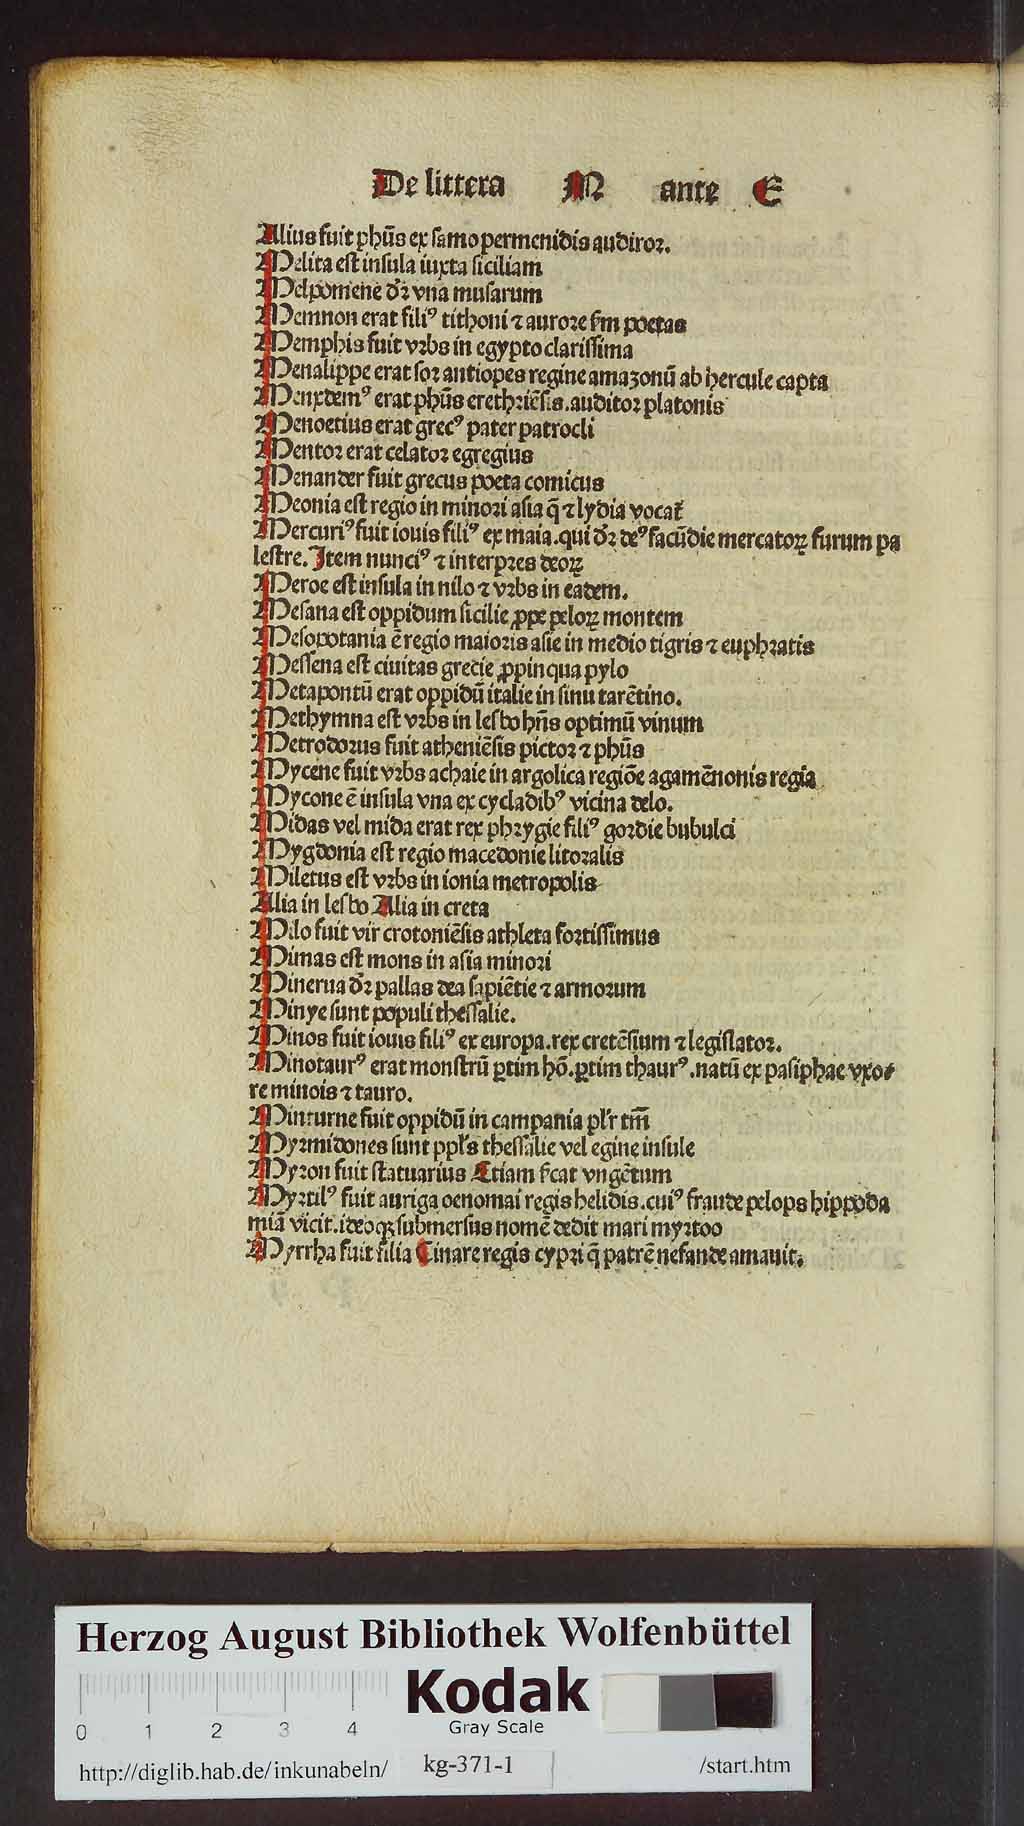 De littera M ante E
Alius fuit phūs ex samo permenidis auditor.
Melita est insula iuxta siciliam
Melpomene dꝛ̄ vna musarum
Memnon erat filiꝰ tithoni ⁊ aurore ẜm poetas
Memphis fuit vrbs in egypto clarissima
Menalippe erat sor antiopes regine amazonū ab hercule capta
Menedemꝰ erat phūs erethriēsis .auditor platonis
Menoetius erat grecꝰ pater patrocli
Mentor erat celator egregius
Menander fuit grecus poeta comicus
Meonia est regio in minori asia q̄ ⁊ lydia vocat᷑
Mercuriꝰ fuit iouis filiꝰ ex maia .qui dꝛ̄ deꝰ facūdie mercatoꝝ furum pa
lestre. Item nunciꝰ ⁊ interpres deoꝝ
Meroe est insula in nilo ⁊ vrbs in eadem.
Mesana est oppidum sicilie ꝓpe peloꝝ montem
Mesopotania ē regio maioris asie in medio tigris ⁊ euphratis
Messena est ciuitas grecie ꝓpinqua pylo
Metapontū erat oppidū italie in sinu tarētino.
Methymna est vrbs in lesbo hn̄s optimū vinum
Metrodorus fuit atheniēsis pictor ⁊ phūs
Mycene fuit vrbs achaie in argolica regiōe agamēnonis regia
Mycone ē insula vna ex cycladibꝰ vicina delo.
Midas vel mida erat rex phrygie filiꝰ gordie bubulci
Mygdonia est regio macedonie litoralis
Miletus est vrbs in ionia metropolis
Alia in lesbo Alia in creta
Milo fuit vir crotoniēsis athleta fortissimus
Mimas est mons in asia minori
Minerua dꝛ̄ pallas dea sapiētie ⁊ armorum
Minye sunt populi thessalie.
Minos fuit iouis filiꝰ ex europa .rex cretēsium ⁊ legislator.
Minotaurꝰ erat monstrū ꝑtim hō .ꝑtim thaurꝰ .natū ex pasiphae vxo⸗
re minois ⁊ tauro.
Minturne fuit oppidū in campania pl̄r tm̄
Myrmidones sunt ppl̄s thessalie vel egine insule
Myron fuit statuarius Etiam ẜcat vngētum
Myrtilꝰ fuit auriga oenomai regis helidis .cuiꝰ fraude pelops hippoda
miā vicit .ideoqꝫ submersus nomē dedit mari myrtoo
Myrrha fuit filia Cinare regis cypri q̄ patrē nefande amauit.
Herzog August Bibliothek Wolfenbüttel
Kodak
Gray Scale
0 1 2 3 4
http://diglib.hab.de/inkunabeln/ kg-371-1 /start.htm